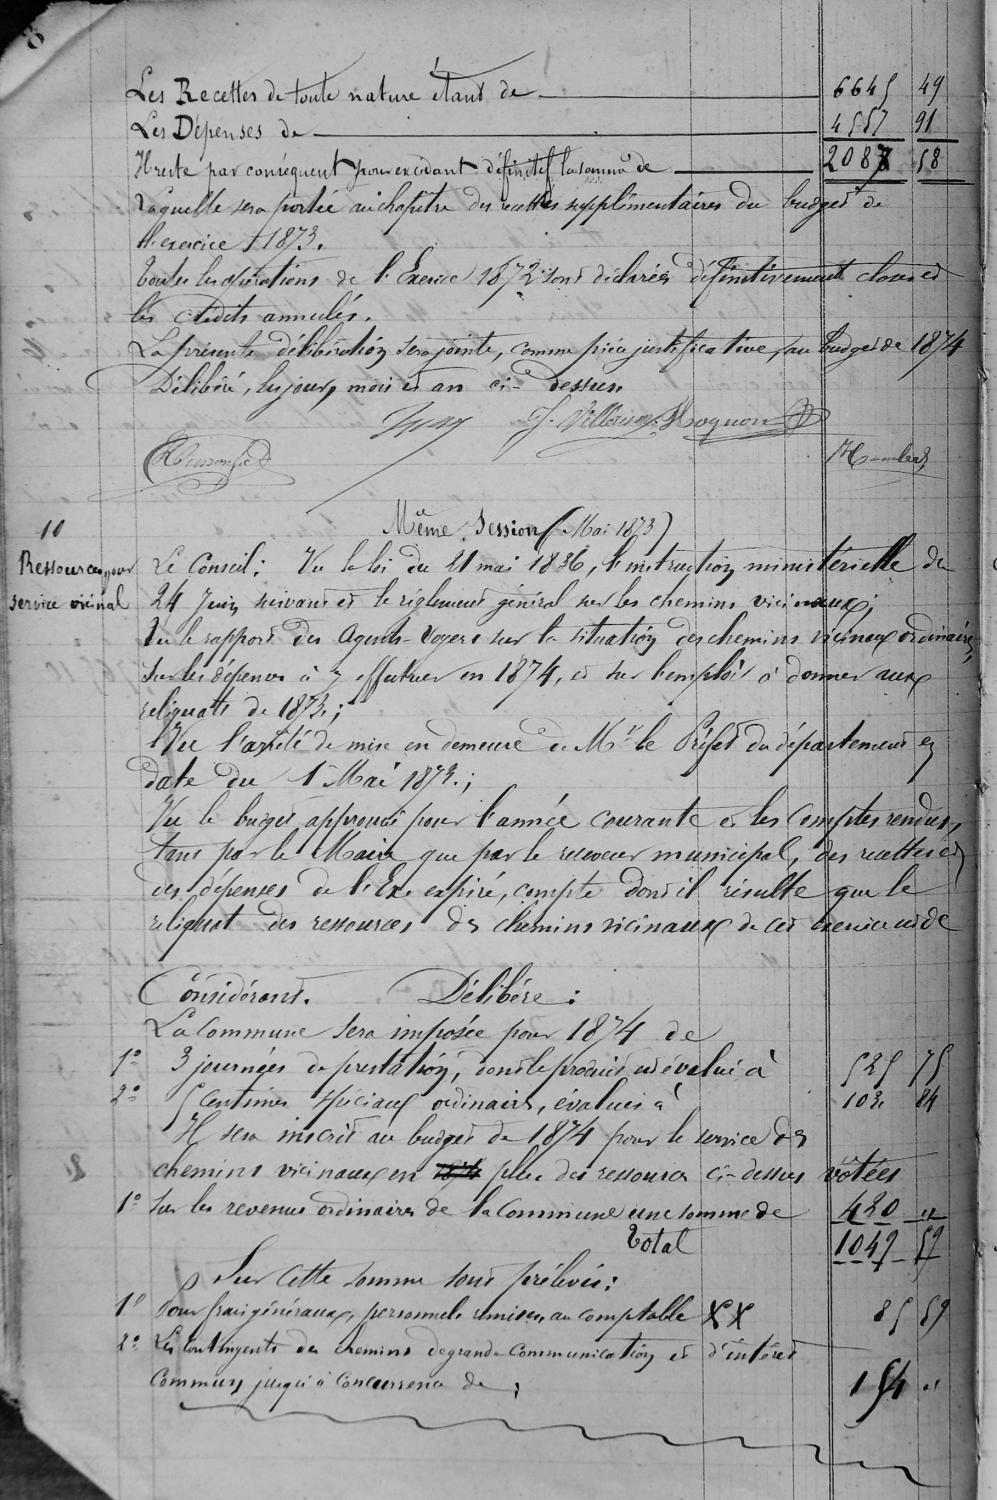 8
Les Recettes de toute nature étant de 6645 49
Les Dépenses de 4557 91
Il reste par conséquent pour excédant définitif la somme de 2087 58
Laquelle sera portée au chapitre des recettes supplémentaires du budget de
l'exercice 1873.
Toutes les opérations de l'Exercice 1872 sont déclarées définitivement closes et
les crédits annulés.
La présente délibération sera jointe, comme pièce justificative, au budget de 1874
Délibéré, les jour, mois et an ci-dessus
Même Session (Mai 1873)
10
Ressources pour
service vicinal
Le Conseil: Vu la loi du 21 mai 1836, l'instruction ministérielle du
24 Juin suivant et le règlement général sur les chemins vicinaux;
Vu le rapport des Agents-Voyers sur la situation des chemins vicinaux ordinaires,
sur les dépenses à y effectuer en 1874, et sur l'emploi à donner aux
reliquats de 1873.;
Vu l'arrêté de mise en demeure de Mr le Préfet du département en
date du 1r Mai 1873.;
Vu le budget approuvé pour l'année courante et les Comptes rendus,
tant par le Maire que par le receveur municipal, des recettes et
des dépenses de l'Exe expiré, compte dont il résulte que le
reliquat des ressources des chemins vicinaux de cet exercice est de
Considérant. Délibère:
La Commune sera imposée pour 1874 de
1° 3 journées de prestation, dont le produit est évalué à 525 75
2° 5 Centimes spéciaux ordinaires, évalués à 103 84
Il sera inscrit au budget de 1874 pour le service des
chemins vicinaux en plus des ressources ci-dessus votées
1° Sur les revenus ordinaires de la Commune une somme de 420 "
Total 1049 59
Sur cette somme sont prélevés:
1° Pour frais généraux, personnel, remises au comptable XX 85 59
2° Les Contingents des chemins de grande Communication et d'intérêt
Commun jusqu'à concurrence de; 154 "